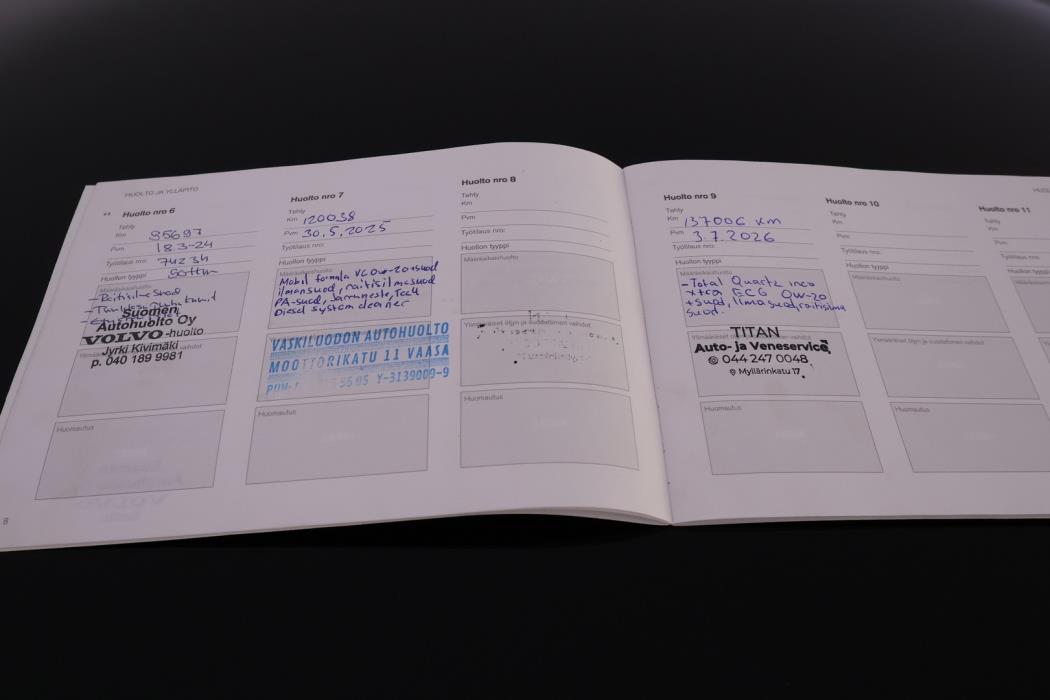 HUOLTO JA YLLÄPITO
Huolto nro 6
Tehty
Km 95697
Pvm 18.3-24
Työtilaus nro: 74234
Huollon tyyppi
Suomen
Autohuolto Oy
VOLVO-huolto
Jyrki Kivimäki
p. 040 189 9981
Huomautus
8
Huolto nro 7
Tehty
Km 120038
Pvm 30.5.2025
Työtilaus nro:
Huollon tyyppi
Määräaikaishuolto
Mobil formula VC 0w-20+suod
ilmansuod, raitisilmasuod
PA-suod, Jarruneste, Tec4
Diesel system cleaner
VASKILUODON AUTOHUOLTO
MOOTTORIKATU 11 VAASA
56 05 Y-3139009-9
Huomautus
Huolto nro 8
Tehty
Km
Pvm
Työtilaus nro:
Huollon tyyppi
Määräaikaishuolto
Ylimääräiset öljyn ja suodattimen vaihdot
Huomautus
Huolto nro 9
Tehty
Km 137006 km
Pvm 3.7.2026
Työtilaus nro:
Huollon tyyppi
Määräaikaishuolto
-Total Quartz ineo
xtra EC6 0W-20
+suod, Ilmasuod, raitisilma
suod.
TITAN
Auto- ja Veneservice
044 247 0048
Myllärinkatu 17
Huomautus
Huolto nro 10
Tehty
Km
Pvm
Työtilaus nro:
Huollon tyyppi
Määräaikaishuolto
Ylimääräiset öljyn ja suodattimen vaihdot
Huomautus
Huolto nro 11
Tehty
Km
Pvm
Työtilaus nro:
Huollon tyyppi